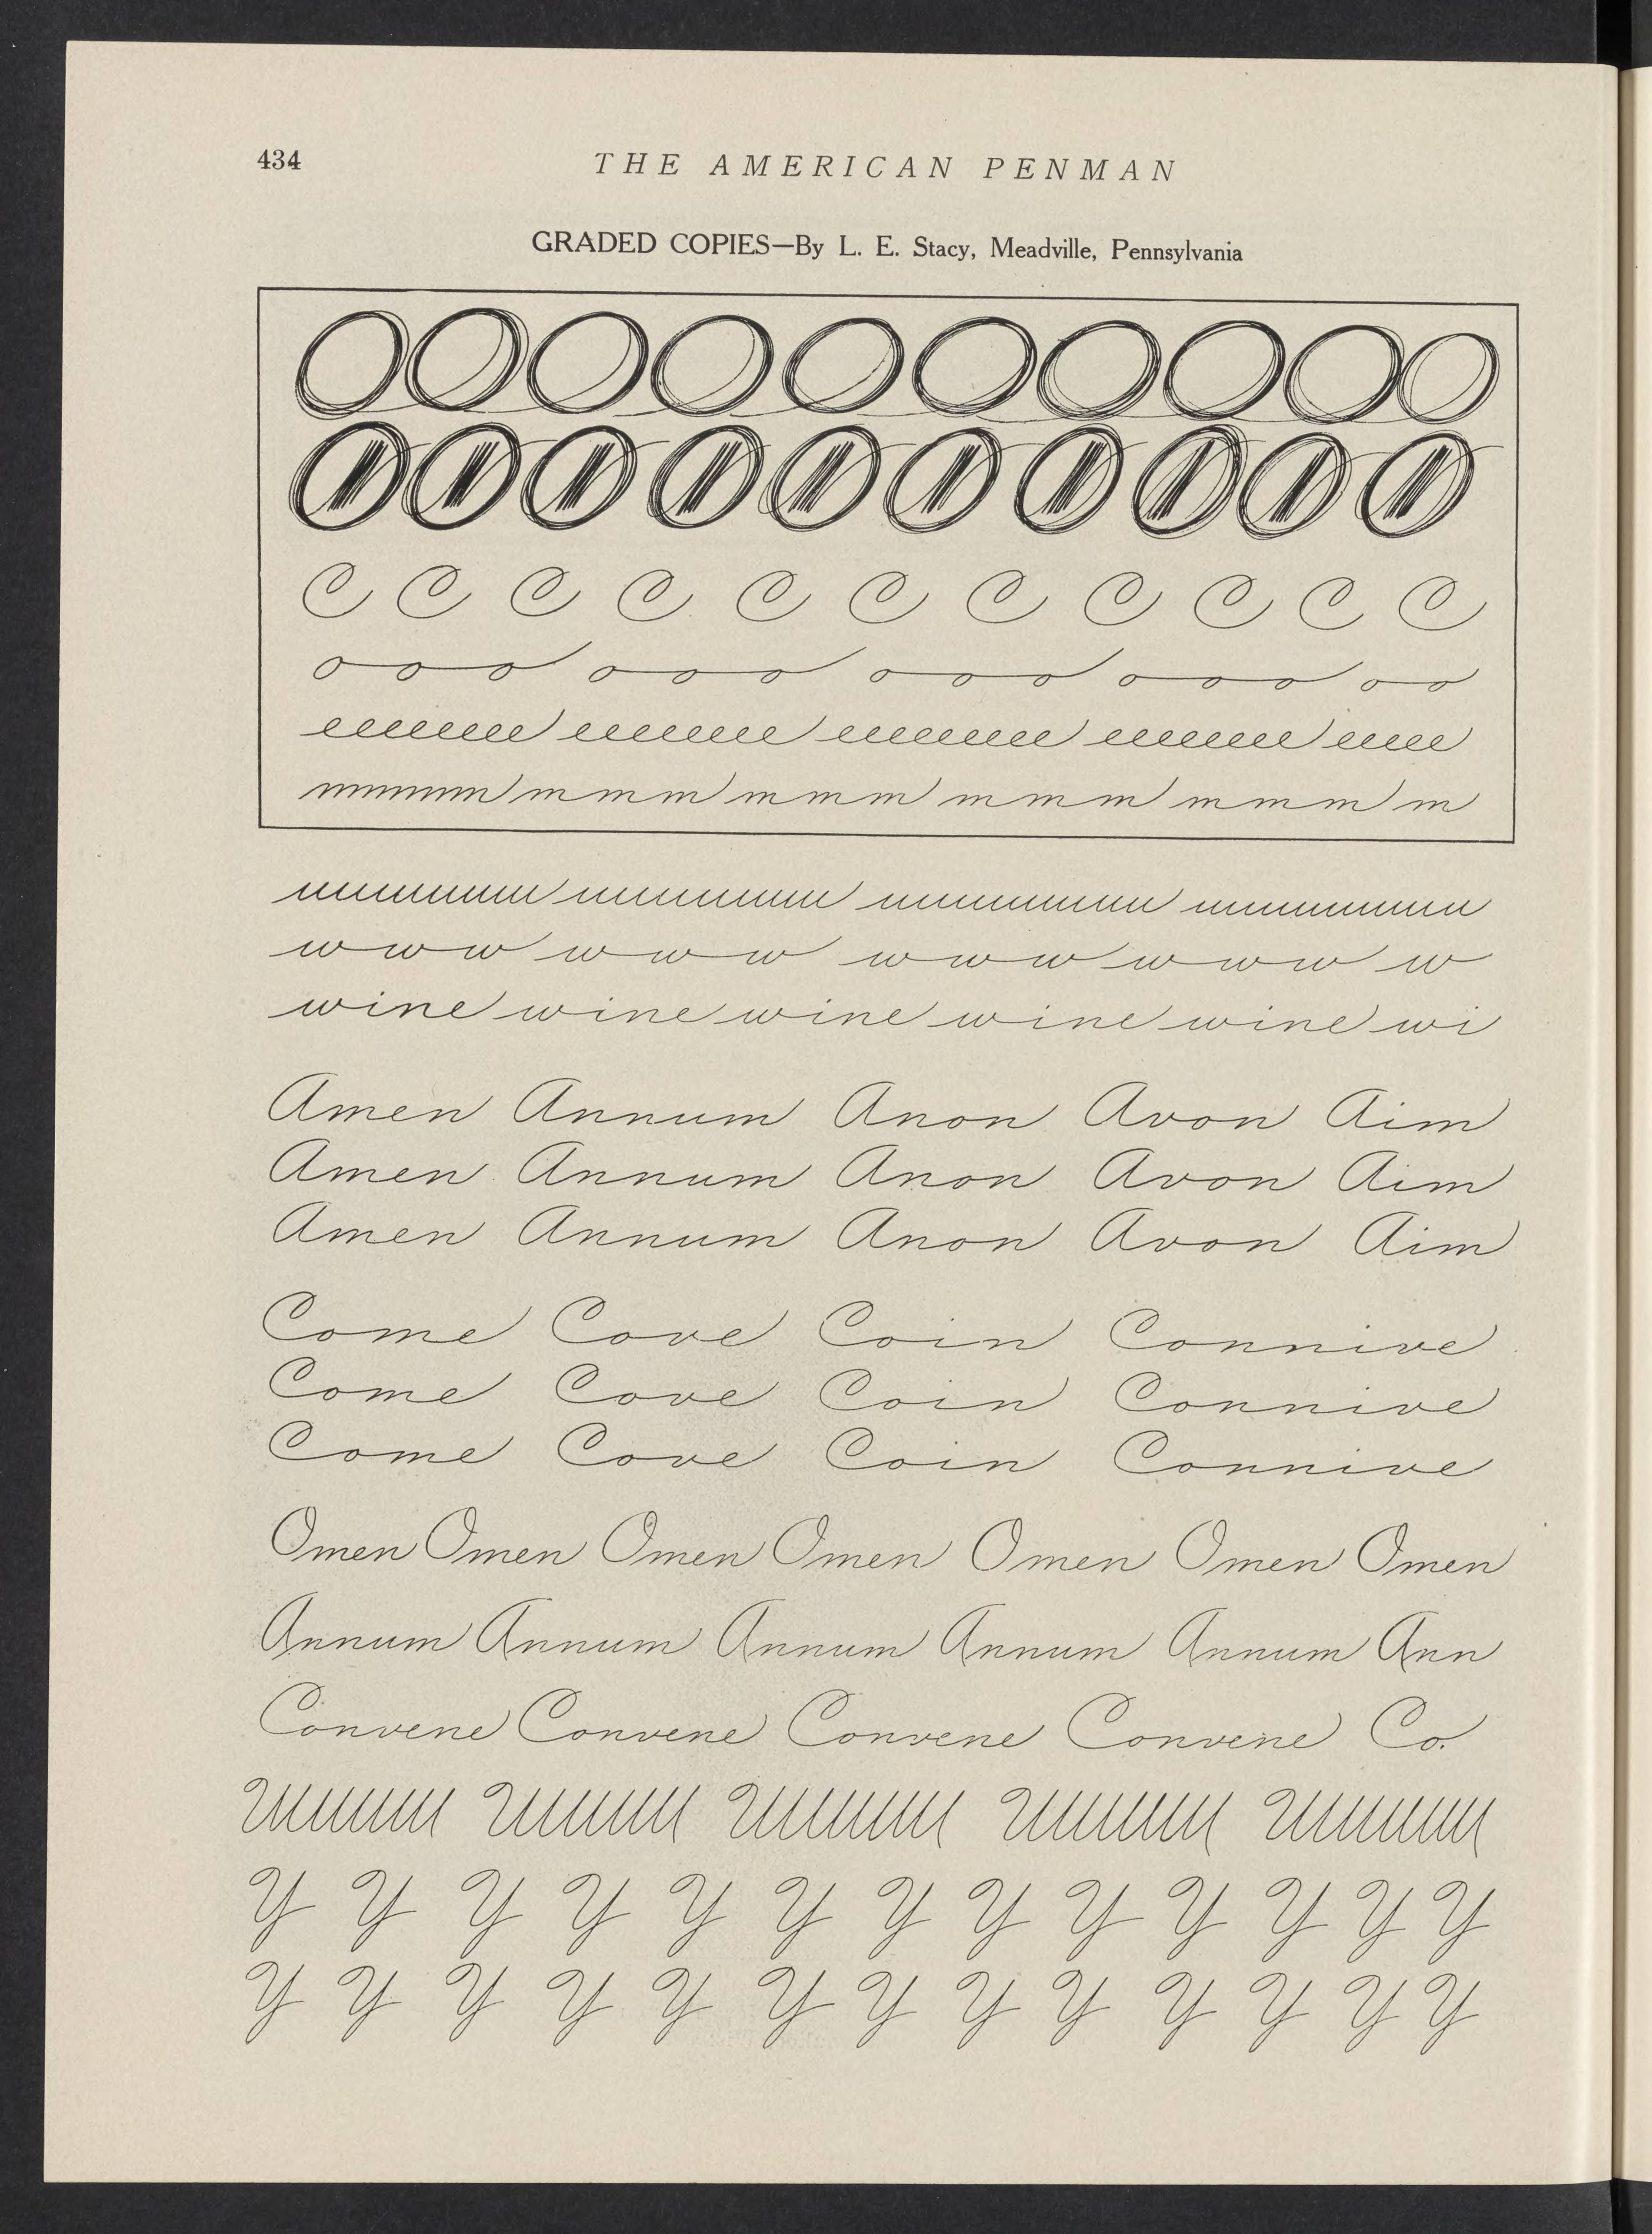 434
THE AMERICAN PENMAN
GRADED COPIES—By L. E. Stacy, Meadville, Pennsylvania
C C C C C C C C C C C
o o o o o o o o o o o o o o
eeeeeeee eeeeeeee eeeeeeeee eeeeeeee eeeee
mmmmm m m m m m m m m m m m m m
uuuuuuu uuuuuuuu uuuuuuuuu uuuuuuuuu
w w w w w w w w w w w w w
wine wine wine wine wine wi
Amen Annum Anon Avon Aim
Amen Annum Anon Avon Aim
Amen Annum Anon Avon Aim
Come Cove Coin Connive
Come Cove Coin Connive
Come Cove Coin Connive
Omen Omen Omen Omen Omen Omen Omen
Annum Annum Annum Annum Annum Ann
Convene Convene Convene Convene Co.
Y Y Y Y Y Y Y Y Y Y Y Y Y
Y Y Y Y Y Y Y Y Y Y Y Y Y